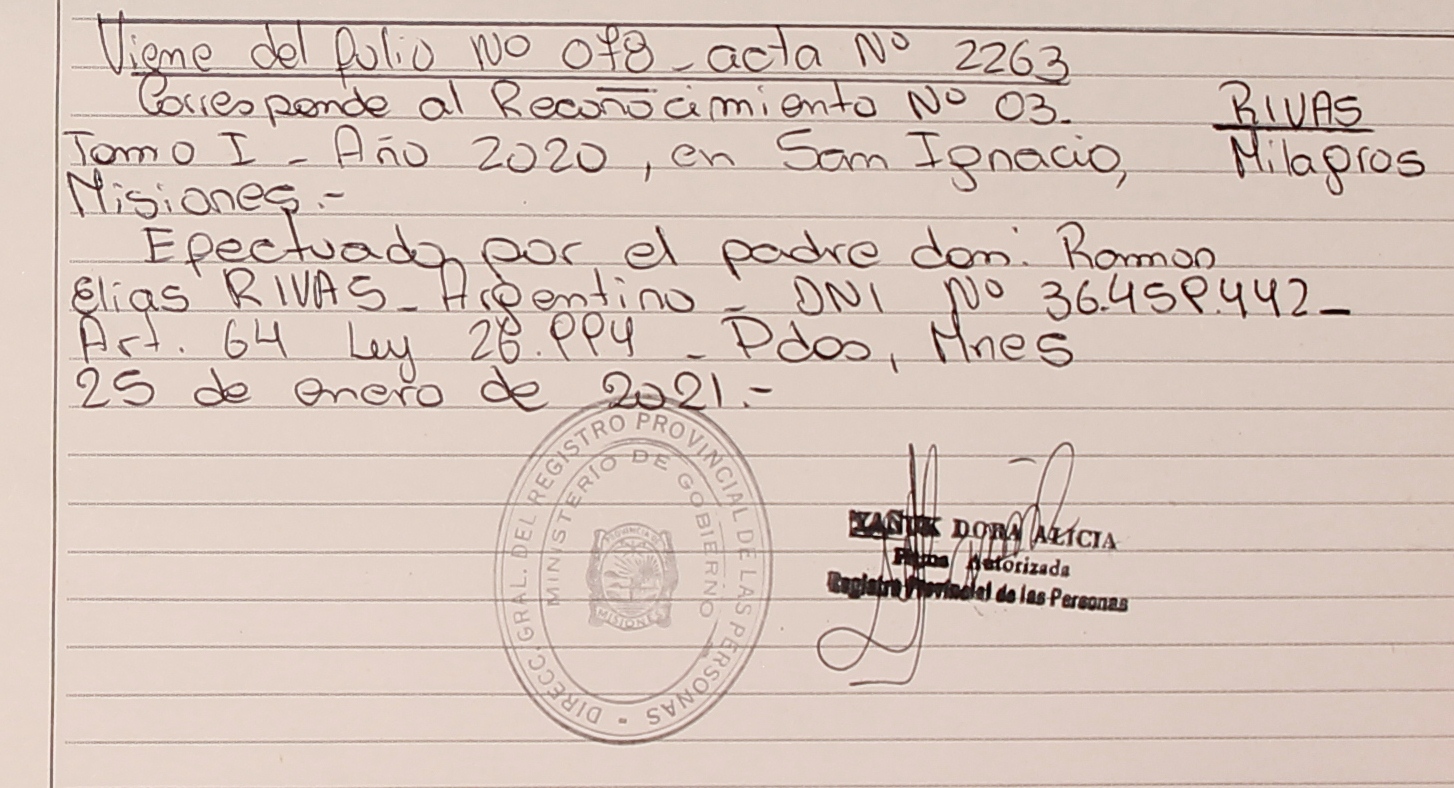 Viene del folio No 078 - acta Nº 2263
Corresponde al Reconocimiento Nº 03.
Tomo I - Año 2020, en San Ignacio,
Misiones.-
Efectuado por el padre don: Ramon
Elias RIVAS - Argentino - DNI Nº 36.459.442 -
Art. 64 Ley 26.994 - Pdas, Mnes
25 de enero de 2021.-
RIVAS
Milagros
DIRECC. GRAL. DEL REGISTRO PROVINCIAL DE LAS PERSONAS
MINISTERIO DE GOBIERNO
PROVINCIA DE
MISIONES
DORA ALICIA
Firma Autorizada
Registro Provincial de las Personas